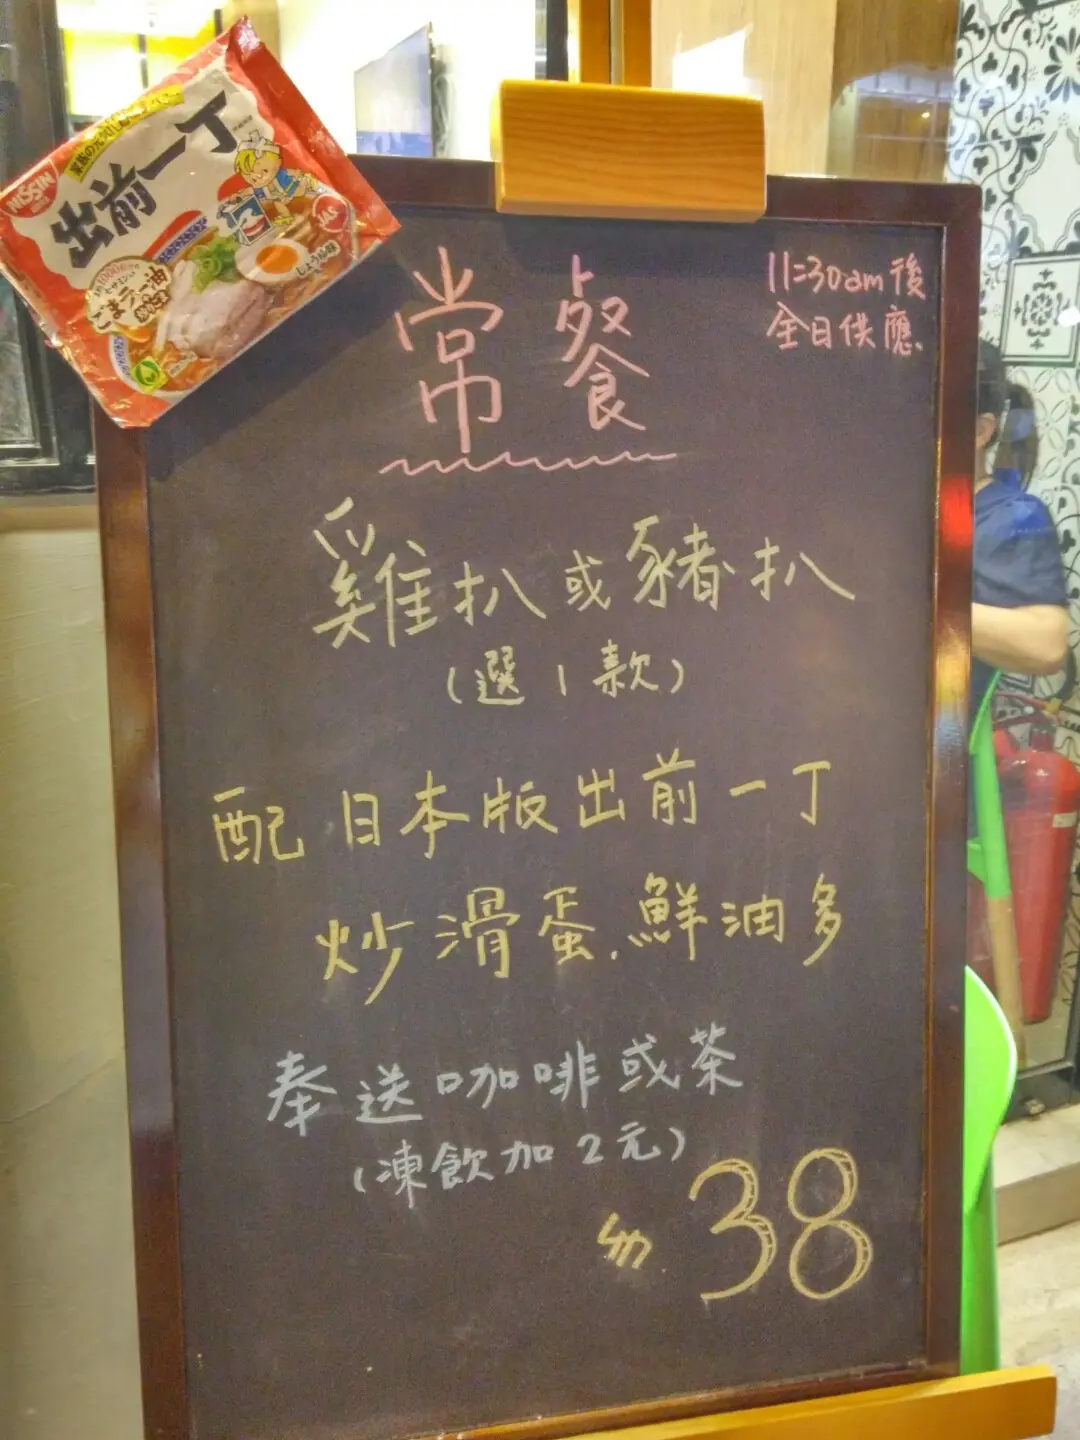 NISSIN
出前一丁
ごまラー油
しょうゆ味
JAS
常餐
11:30am後
全日供應.
雞扒或豬扒
(選1款)
配日本版出前一丁
炒滑蛋.鮮油多
奉送咖啡或茶
(凍飲加2元)
38